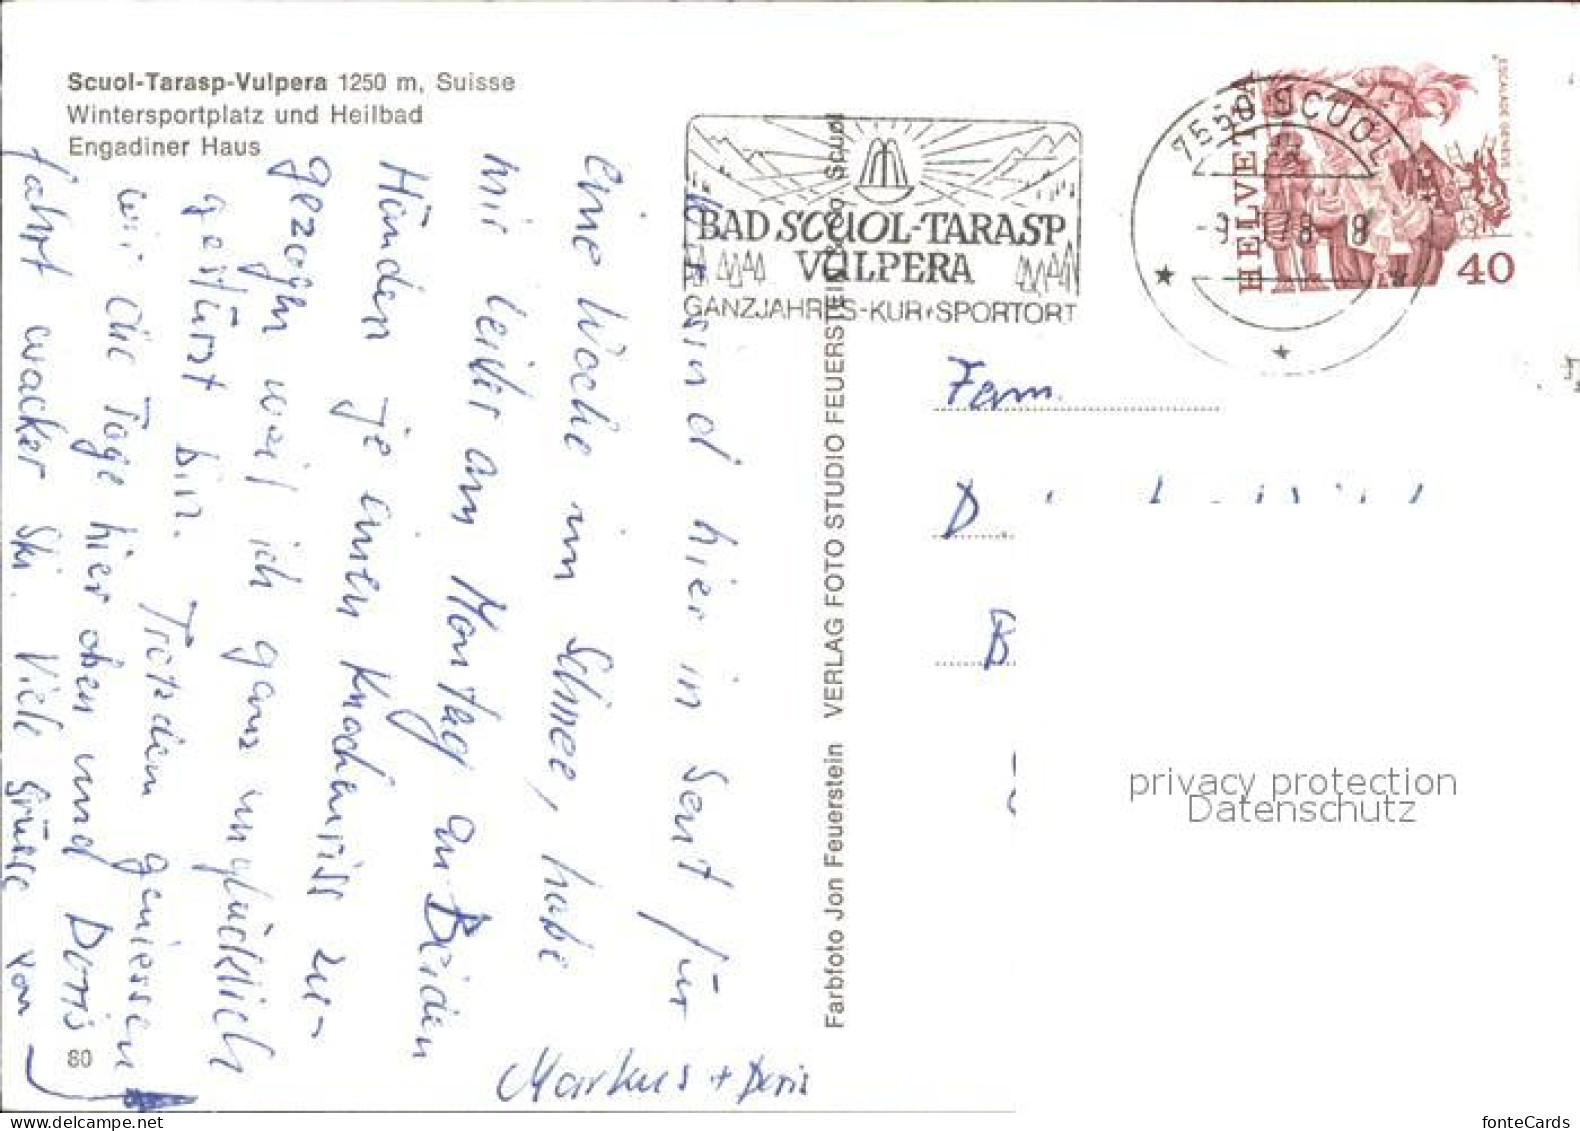 Scuol-Tarasp-Vulpera 1250 m, Suisse
Wintersportplatz und Heilbad
Engadiner Haus
BAD SCUOL-TARASP
VULPERA
GANZJAHRES-KUR+SPORTORT
7550 SCUOL
HELVETIA
40
ESCALADE GENÈVE
sind hier in Sent für
eine Woche im Schnee, habe
mir leider am Montag an Beiden
Händen je einen Knochenriss zu-
gezogen weil ich ganz unglücklich
gestürzt bin. Trotzdem geniessen
wir die Tage hier oben und Doris
fährt wacker Ski. Viele Grüsse von
Markus + Doris
Fam.
D
B
Farbfoto Jon Feuerstein VERLAG FOTO STUDIO FEUERSTEIN Scuol
80
privacy protection
Datenschutz
www.delcampe.net
fonteCards